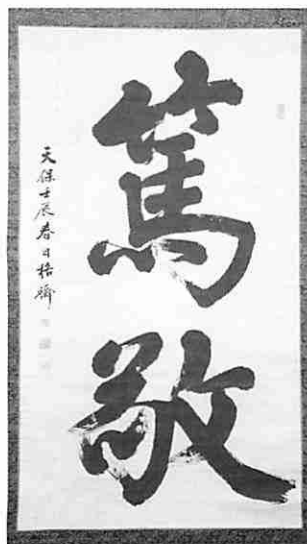 篤敬
天保壬辰春日